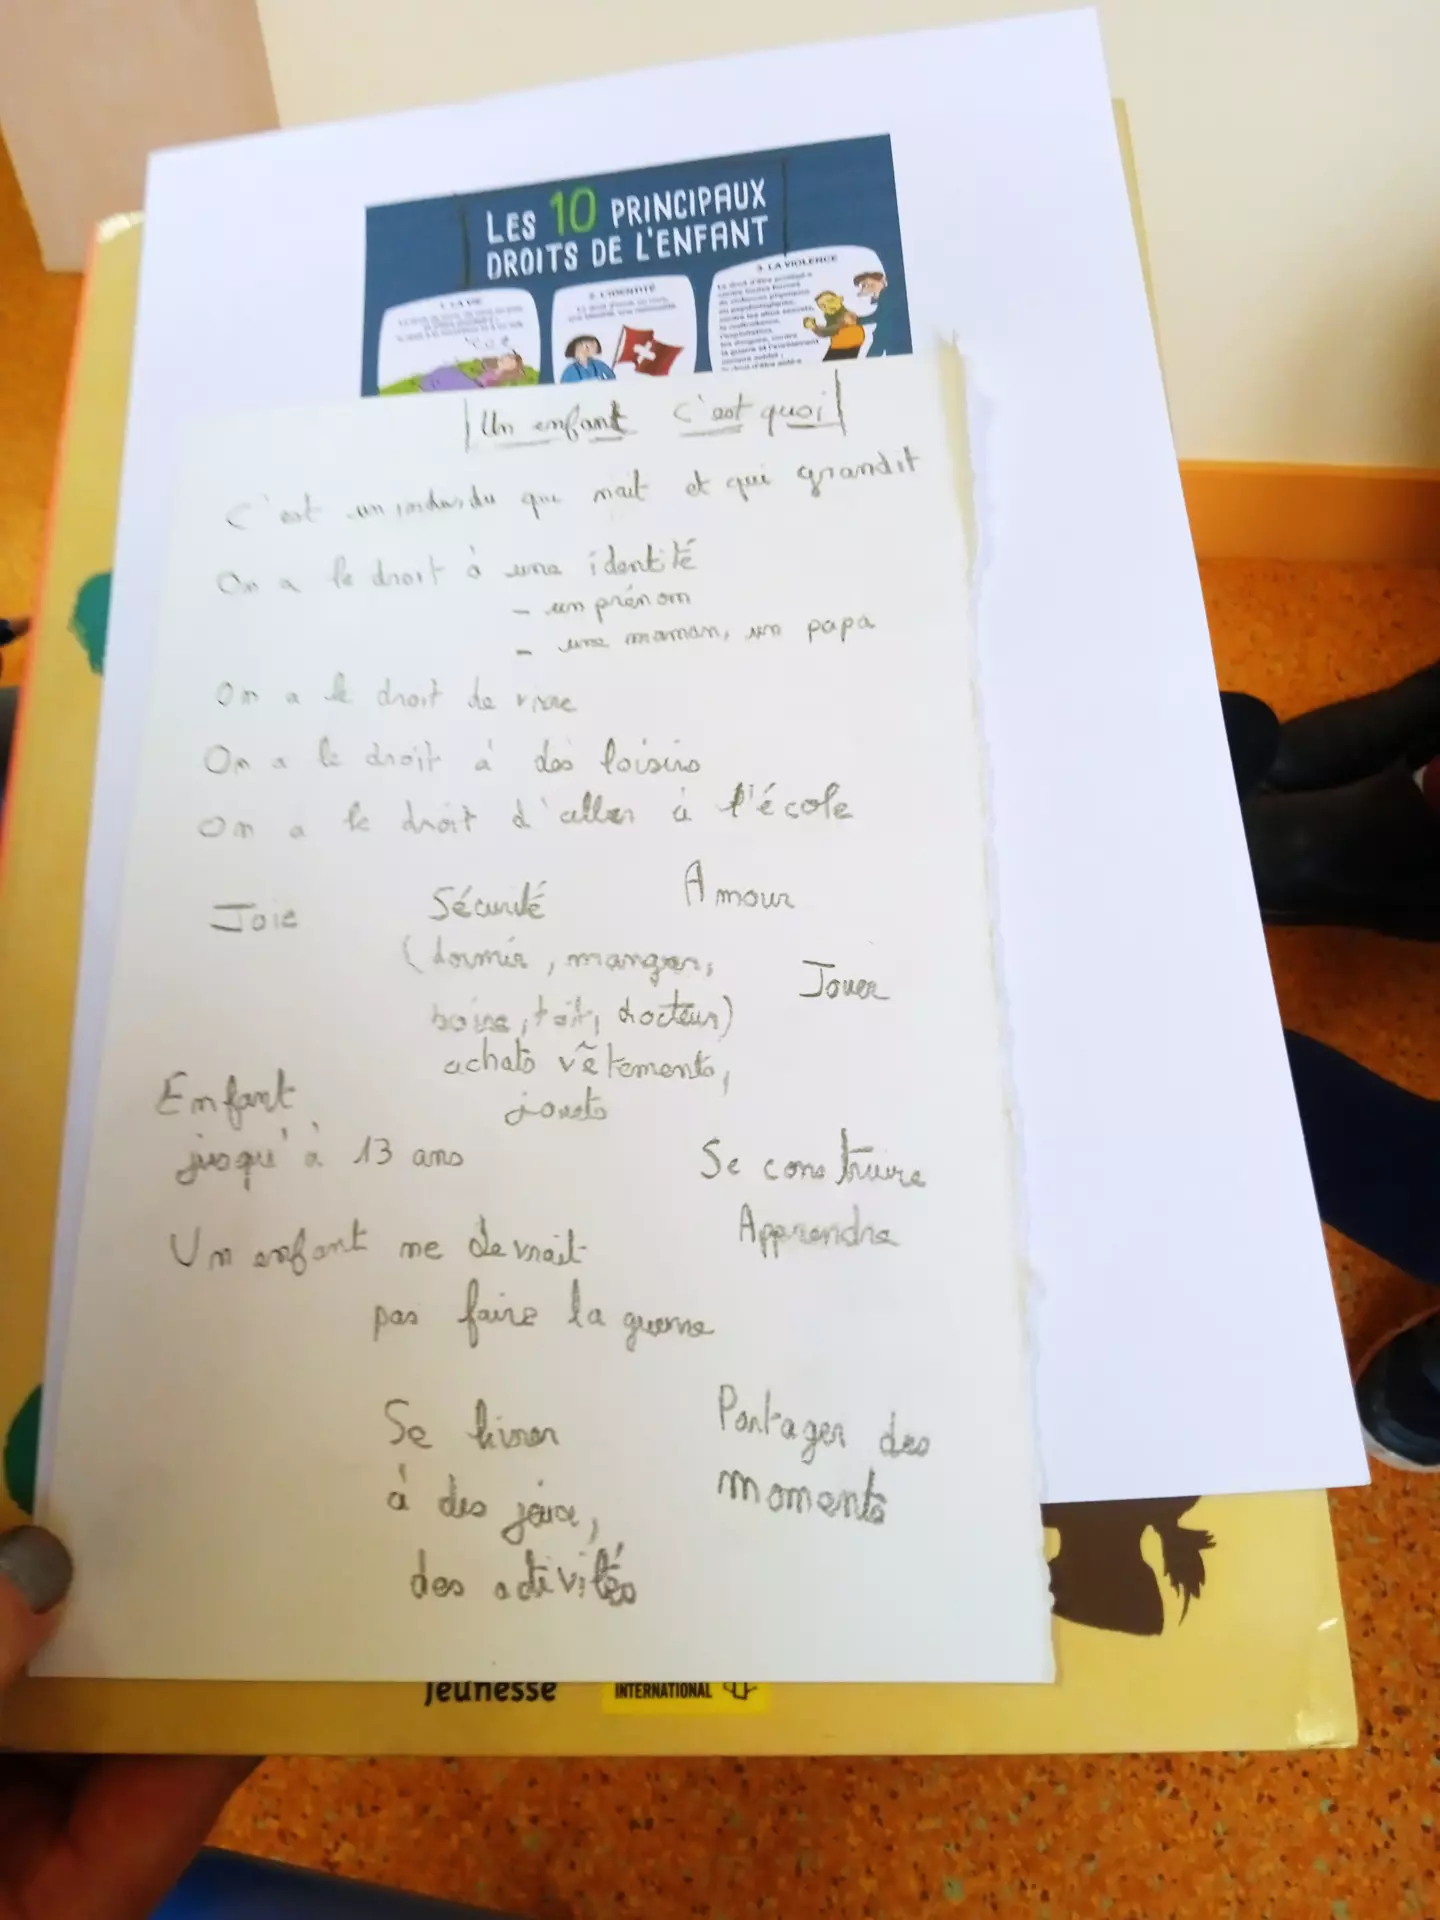 LES 10 PRINCIPAUX
DROITS DE L'ENFANT
1. LA VIE
2. L'IDENTITÉ
3. LA VIOLENCE
Un enfant c'est quoi
C'est un individu qui nait et qui grandit
On a le droit à une identité
- un prénom
- une maman, un papa
On a le droit de vivre
On a le droit à des loisirs
On a le droit d'aller à l'école
Joie
Sécurité
Amour
(dormir, manger,
boire, toit, docteur)
Jouer
achats vêtements,
jouets
Enfant
jusqu'à 13 ans
Se construire
Apprendre
Un enfant ne devrait
pas faire la guerre
Se livrer
à des jeux,
des activités
Partager des
moments
Jeunesse
INTERNATIONAL